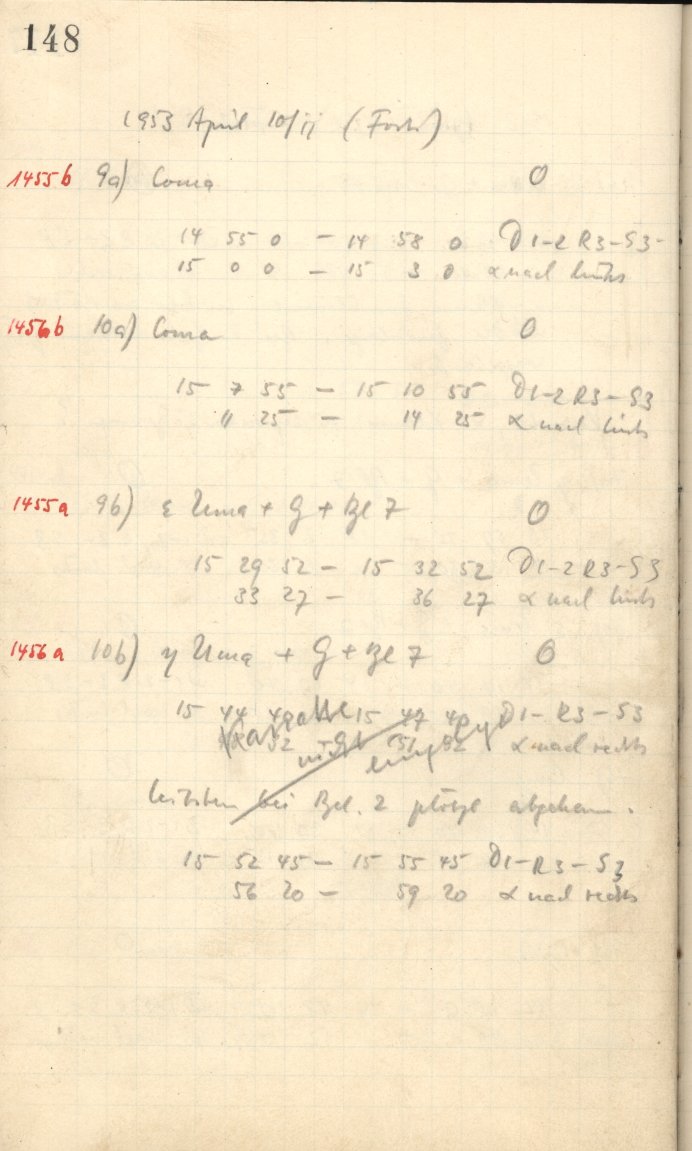 148
1953 April 10/11 (Forts)
1455b 9a) Coma O
14 55 0 – 14 58 0 D1-2 R3-S3-
15 0 0 – 15 3 0 α nach links
1456b 10a) Coma O
15 7 55 – 15 10 55 D1-2 R3-S3
11 25 – 14 25 α nach links
1455a 9b) ε Uma + G + Bl 7 O
15 29 52 – 15 32 52 D1-2 R3-S3
33 27 – 36 27 α nach links
1456a 10b) η Uma + G + Bl 7 O
15 44 15 47 D1-R3-S3
nicht α nach rechts
bei Bel. 2 plötzl
15 52 45 – 15 55 45 D1-R3-S3
56 20 – 59 20 α nach rechts